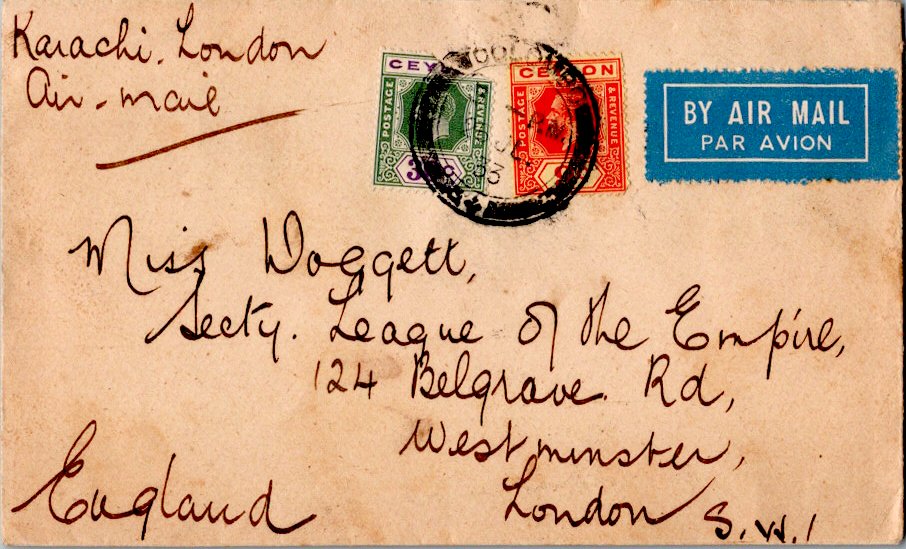 Karachi-London
Air-mail
CEY
POSTAGE
& REVENUE
CEYLON
POSTAGE
& REVENUE
BY AIR MAIL
PAR AVION
Miss Doggett,
Secty. League of the Empire,
124 Belgrave Rd,
Westminster,
London S.W.1
England